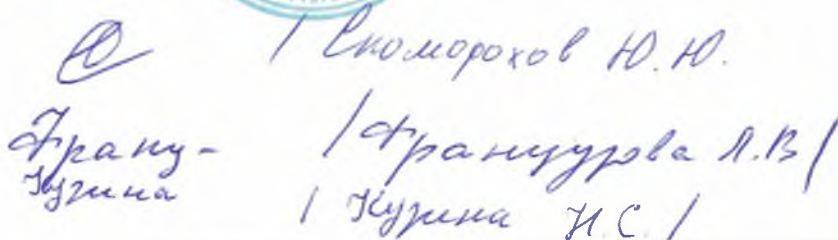 / Скоморохов Ю.Ю.
Франц- / Французова Л.В /
Кузина / Кузина Н.С. /